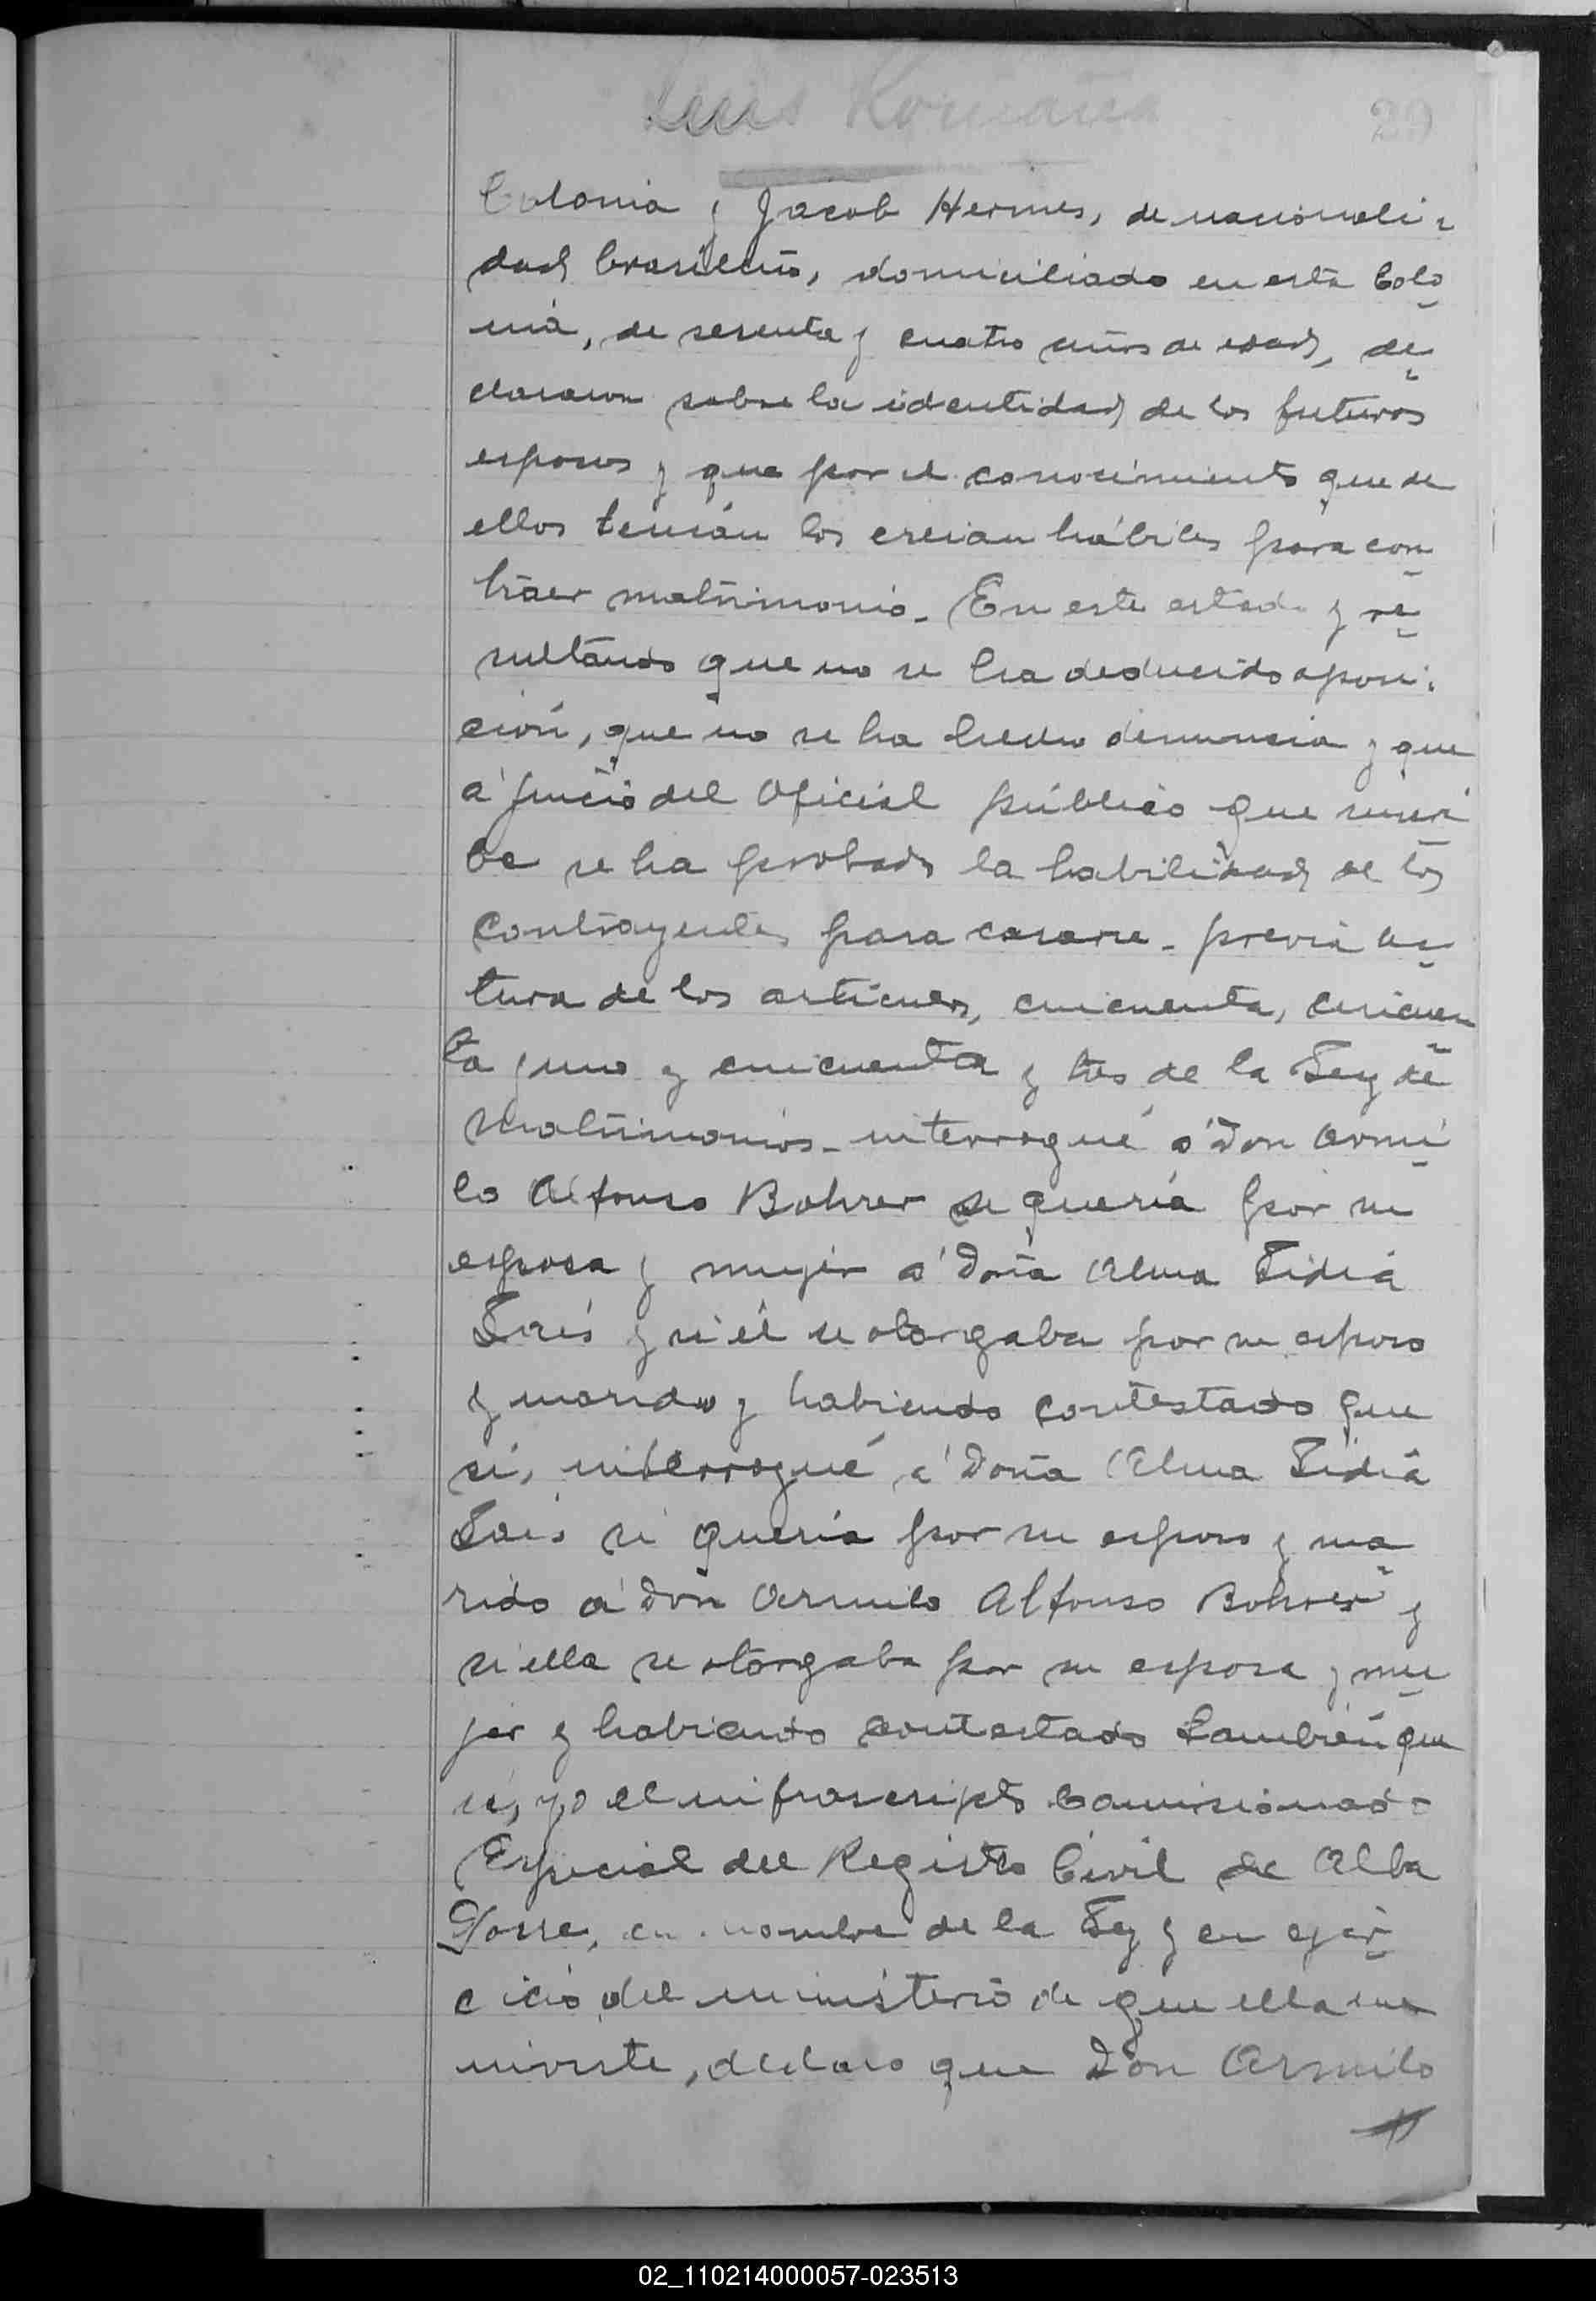 Luis Romaña
29
Colonia y Jacob Hermes, de nacionali-
dad brasileño, domiciliado en esta Colo
nia, de sesenta y cuatro años de edad, de
clararon sobre la identidad de los futuros
esposos y que por el conocimiento que de
ellos tenián los creian hábiles para con
tráer matrimonio. En este estado y re
sultando que no se ha deducido oposi-
ción, que no se ha hecho denuncia y que
á juicio del Oficial público que suscri
be se ha probado la habilidad de los
contrayentes para casarse. previa lec
tura de los artículos, cincuenta, cincuen
ta y uno y cincuenta y tres de la Ley de
Matrimonios. interrogué á Don Armi
lo Alfonso Bohrer si quería por su
esposa y mujer á Doña Alma Lidia
y si él se otorgaba por su esposo
y marido y habiendo contestado que
sí, interrogué á Doña Alma Lidia
si quería por su esposo y ma
rido á Don Armilo Alfonso Bohrer y
si ella se otorgaba por su esposa y mu
jer y habiendo contestado también que
sí, yo el infrascripto Comisionado
Especial del Registro Civil de Alba
Posse, en nombre de la Ley y en ejer
cicio del ministerio de que ella me
inviste, declaro que Don Armilo
02_110214000057-023513